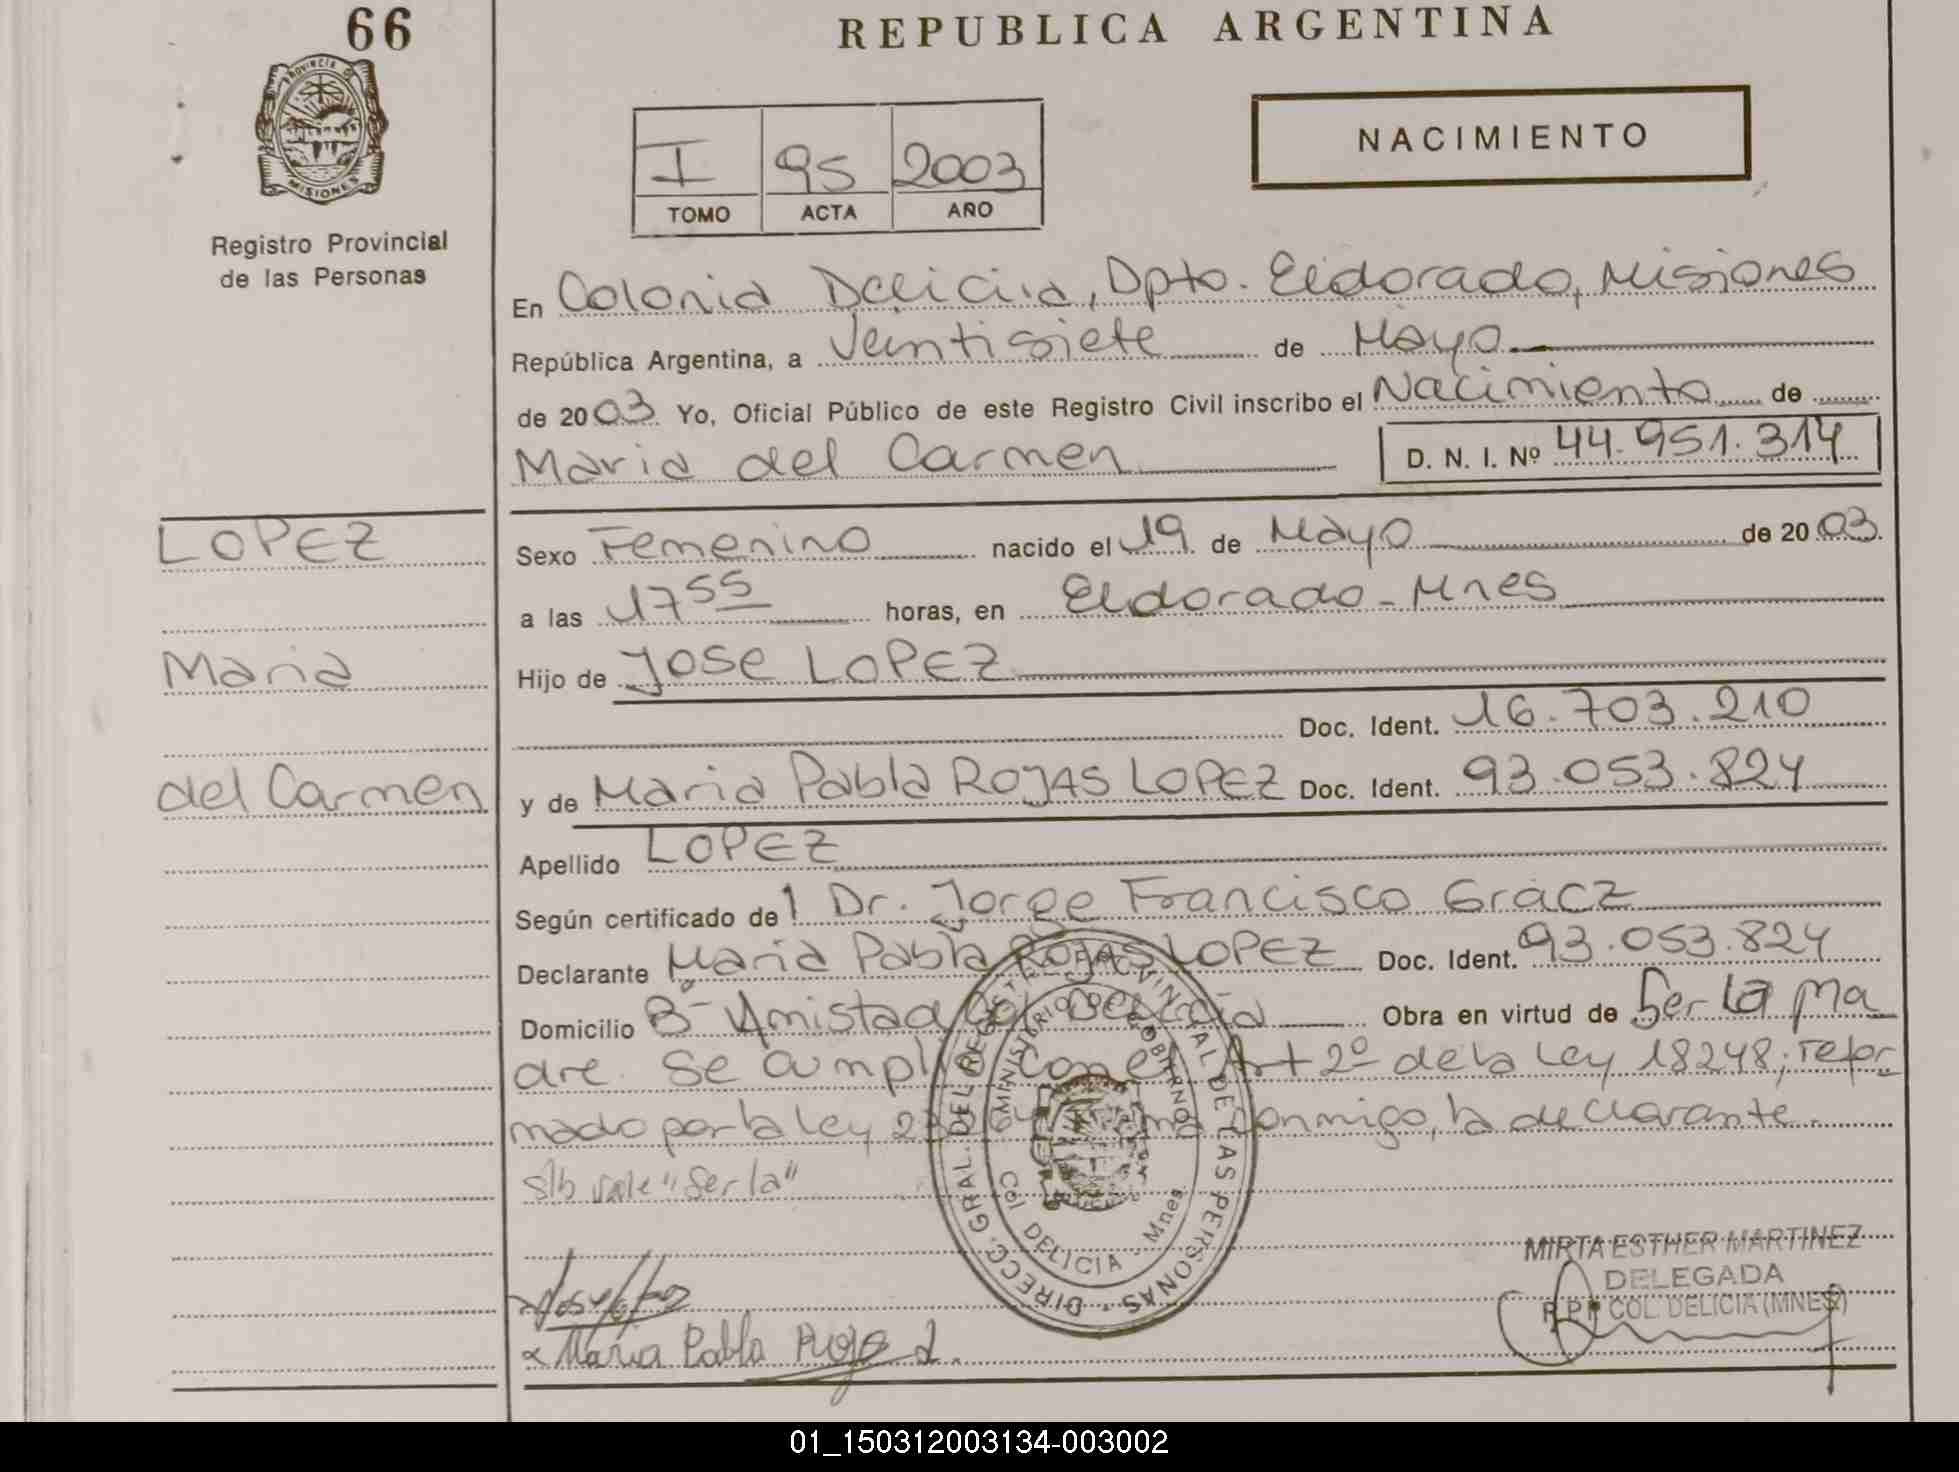 66
REPUBLICA ARGENTINA
PROVINCIA DE
MISIONES
Registro Provincial
de las Personas
I 95 2003
TOMO ACTA AÑO
NACIMIENTO
En Colonia Delicia, Dpto. Eldorado, Misiones
República Argentina, a Veintisiete de Mayo
de 2003 Yo, Oficial Público de este Registro Civil inscribo el Nacimiento de
Maria del Carmen D. N. I. Nº 44.951.314
LOPEZ
Sexo Femenino nacido el 19 de Mayo de 2003.
a las 17 55 horas, en Eldorado - Mnes
Maria
Hijo de Jose LOPEZ
Doc. Ident. 16.703.210
del Carmen
y de Maria Pabla ROJAS LOPEZ Doc. Ident. 93.053.824
Apellido LOPEZ
Según certificado del Dr. Jorge Francisco Gracz
Declarante Maria Pabla ROJAS LOPEZ Doc. Ident. 93.053.824
Domicilio Bº Amistad Col. Delicia Obra en virtud de Ser la ma
dre. Se cumplió con el Art 2º de la Ley 18248, refor
mado por la Ley conmigo, la declarante.
s/b vale "Ser la"
DIRECC. GRAL. DEL REGISTRO PROVINCIAL DE LAS PERSONAS
MINISTERIO DE GOBIERNO
Col. DELICIA - Mnes.
MIRTA ESTHER MARTINEZ
DELEGADA
R.P.P. COL. DELICIA (MNES)
Maria Pabla Rojas L.
01_150312003134-003002